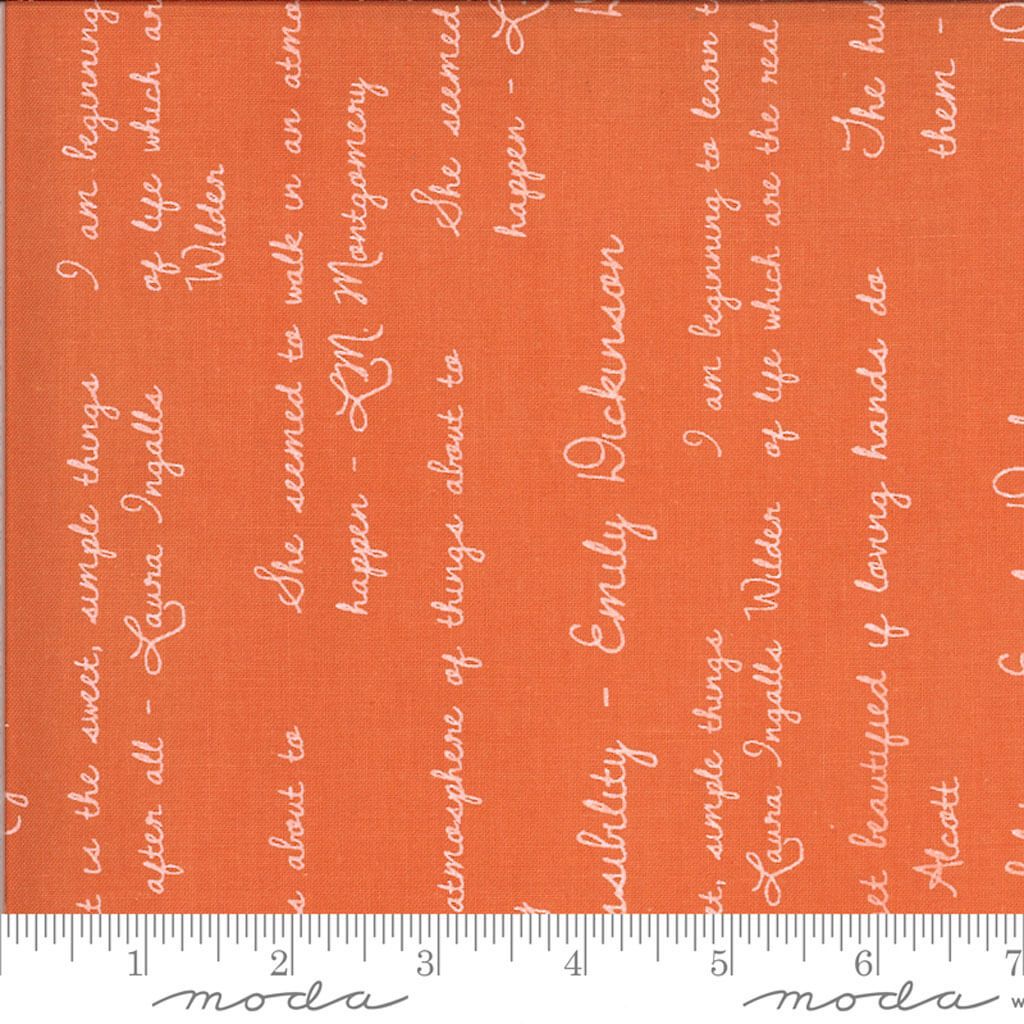 is the sweet, simple things I am beginning
after all - Laura Ingalls of life which
Wilder
about to She seemed to walk in an
happen - L.M. Montgomery
atmosphere of things about to She seemed
happen -
sibility - Emily Dickinson
simple things I am beginning to learn
Laura Ingalls Wilder of life which are the real
beautified if loving hands do The
Alcott them -
1 2 3 4 5 6 7
moda moda